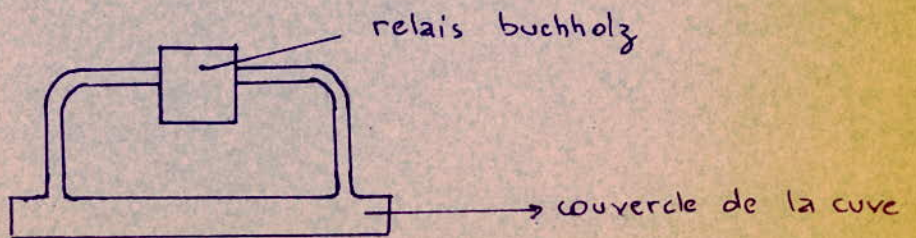 relais buchholz
couvercle de la cuve